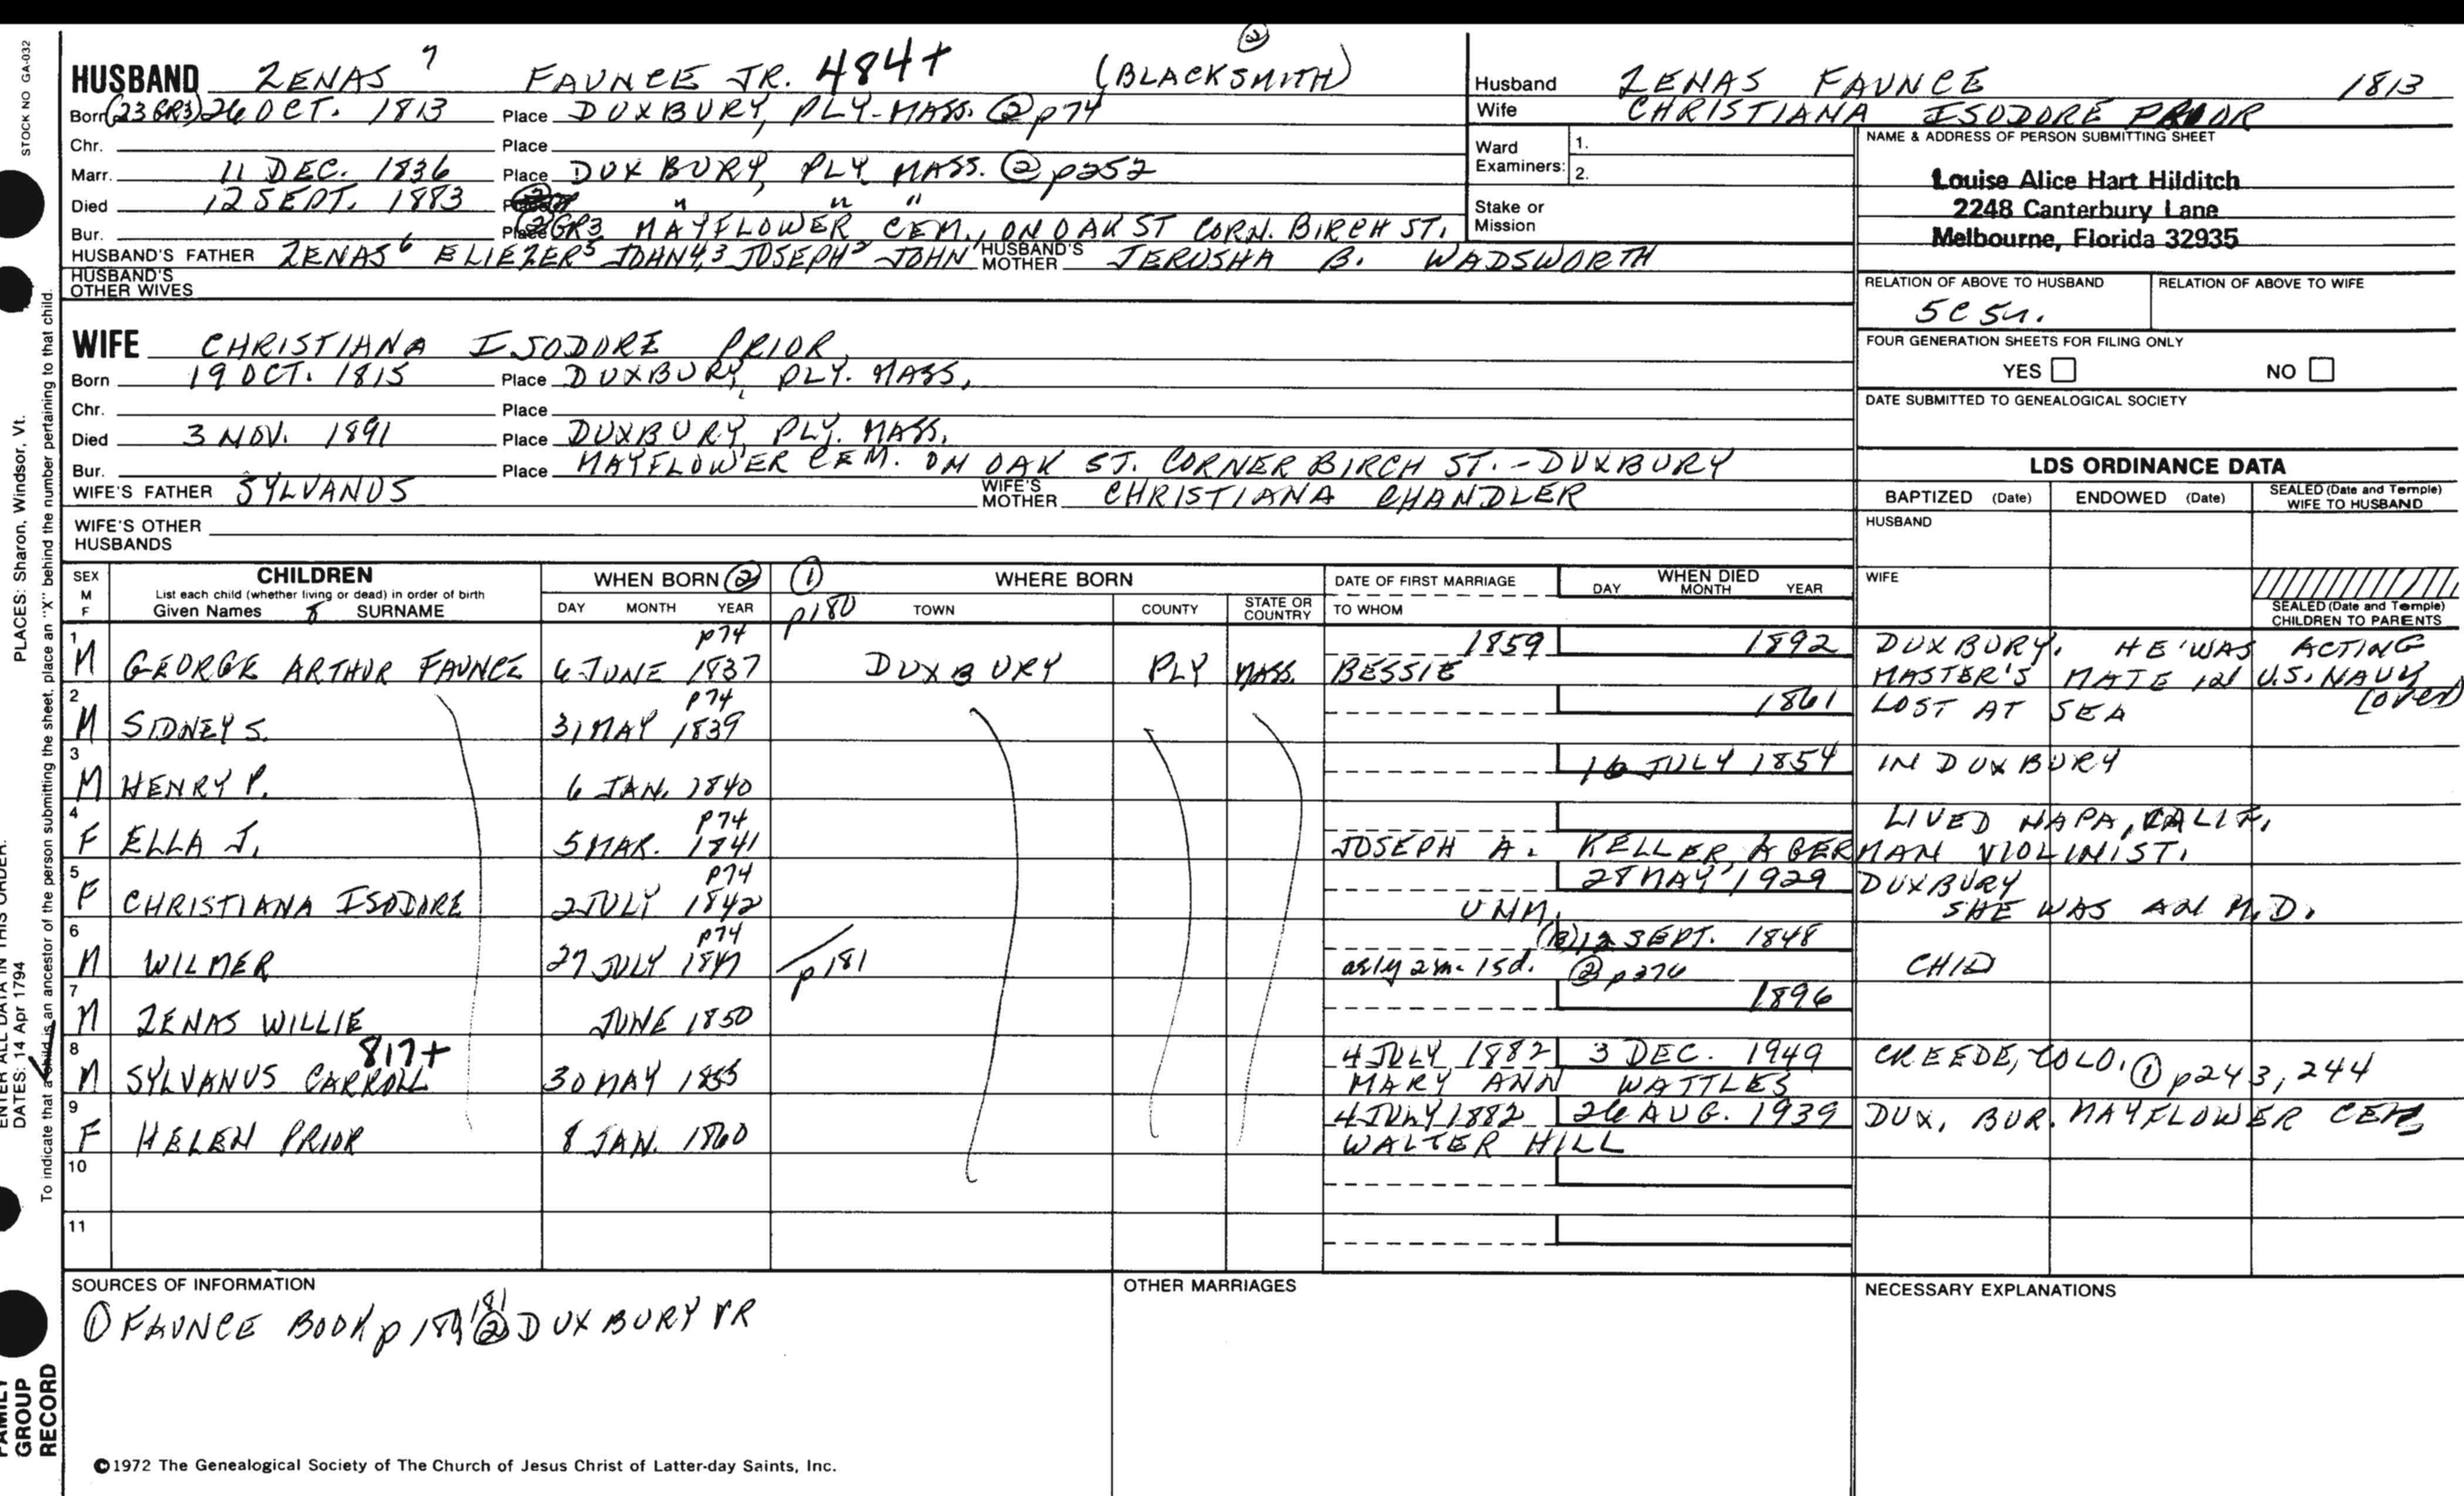 STOCK NO GA-032
HUSBAND ZENAS 7 FAUNCE JR. 484+ (BLACKSMITH) ②
Born (23 GR3) 26 OCT. 1813 Place DUXBURY, PLY-MASS. ② p74
Chr. Place
Marr. 11 DEC. 1836 Place DUXBURY, PLY MASS. ② p252
Died 12 SEPT. 1883 " " "
Bur. Place ② GR3 MAYFLOWER CEM., ON OAK ST CORN. BIRCH ST.
HUSBAND'S FATHER ZENAS6 ELIEZER5 JOHN4,3 JOSEPH2 JOHN1 HUSBAND'S MOTHER JERUSHA B. WADSWORTH
HUSBAND'S OTHER WIVES
WIFE CHRISTIANA ISODORE PRIOR
Born 19 OCT. 1815 Place DUXBURY, PLY. MASS,
Chr. Place
Died 3 NOV. 1891 Place DUXBURY, PLY. MASS,
Bur. Place MAYFLOWER CEM. ON OAK ST. CORNER BIRCH ST. - DUXBURY
WIFE'S FATHER SYLVANUS WIFE'S MOTHER CHRISTIANA CHANDLER
WIFE'S OTHER HUSBANDS
Husband ZENAS FAUNCE 1813
Wife CHRISTIANA ISODORE PRIOR
Ward Examiners: 1.
2.
Stake or Mission
NAME & ADDRESS OF PERSON SUBMITTING SHEET
Louise Alice Hart Hilditch
2248 Canterbury Lane
Melbourne, Florida 32935
RELATION OF ABOVE TO HUSBAND RELATION OF ABOVE TO WIFE
5C
FOUR GENERATION SHEETS FOR FILING ONLY
YES NO
DATE SUBMITTED TO GENEALOGICAL SOCIETY
LDS ORDINANCE DATA
BAPTIZED (Date) ENDOWED (Date) SEALED (Date and Temple) WIFE TO HUSBAND
HUSBAND
WIFE
SEALED (Date and Temple) CHILDREN TO PARENTS
SEX M F CHILDREN WHEN BORN ② ① WHERE BORN DATE OF FIRST MARRIAGE WHEN DIED
List each child (whether living or dead) in order of birth
Given Names 8 SURNAME DAY MONTH YEAR p180 TOWN COUNTY STATE OR COUNTRY TO WHOM DAY MONTH YEAR
1 p74 1859 1892 DUXBURY. HE WAS ACTING
M GEORGE ARTHUR FAUNCE 6 JUNE 1837 DUXBURY PLY MASS. BESSIE MASTER'S MATE IN U.S. NAVY
2 p74 1861 LOST AT SEA (over)
M SIDNEY S. 31 MAY 1839
3 16 JULY 1854 IN DUXBURY
M HENRY P. 6 JAN. 1840
4 p74 LIVED NAPA, CALIF.
F ELLA J. 5 MAR. 1841 JOSEPH A. KELLER, A GERMAN VIOLINIST.
5 p74 28 MAY 1929 DUXBURY
F CHRISTIANA ISODORE 2 JULY 1842 UNM. SHE WAS AN M.D.
6 p74 12 SEPT. 1848
M WILMER 27 JULY 1847 p181 as 1y 2m. 15d. ② p376 CHILD
7 1896
M ZENAS WILLIE JUNE 1850
8 817+ 4 JULY 1882 3 DEC. 1949 CREEDE, COLO. ① p243, 244
M SYLVANUS CARROLL 30 MAY 1855 MARY ANN WATTLES
9 4 JULY 1882 26 AUG. 1939 DUX, BUR. MAYFLOWER CEM
F HELEN PRIOR 8 JAN. 1860 WALTER HILL
10
11
SOURCES OF INFORMATION OTHER MARRIAGES NECESSARY EXPLANATIONS
① FAUNCE BOOK p 181 ② DUXBURY VR
©1972 The Genealogical Society of The Church of Jesus Christ of Latter-day Saints, Inc.
PLACES: Sharon, Windsor, Vt.
To indicate that a child is an ancestor of the person submitting the sheet, place an "X" behind the number pertaining to that child.
ENTER ALL DATA IN THIS ORDER:
DATES: 14 Apr 1794
FAMILY GROUP RECORD